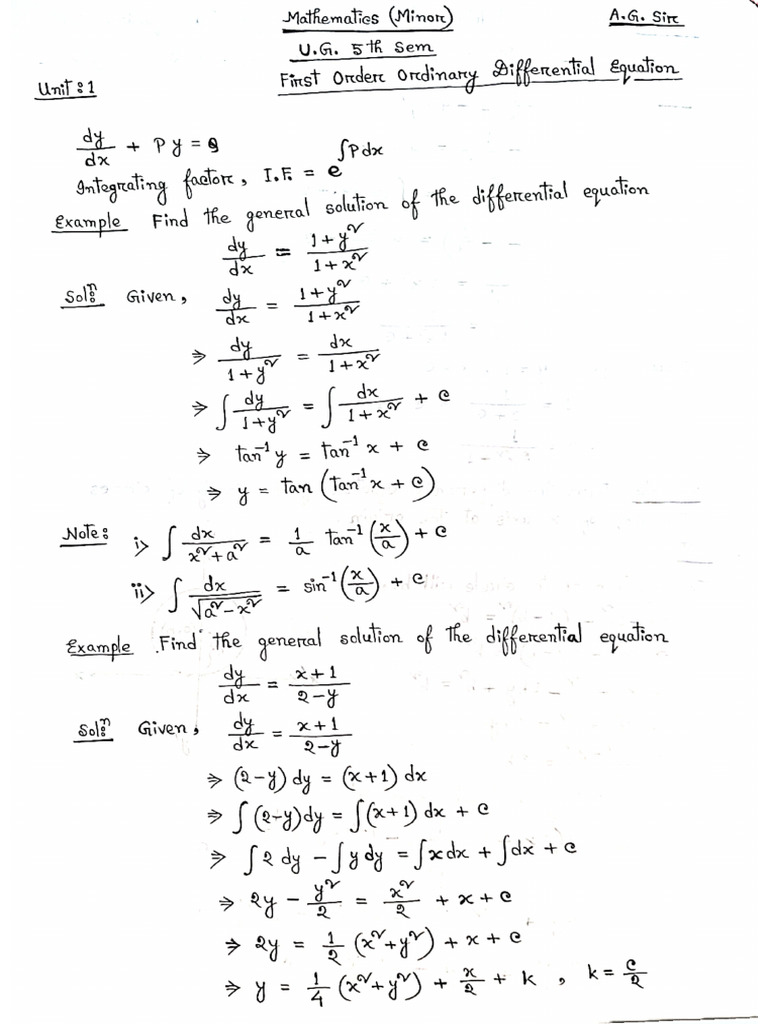 Mathematics (Minor)
A.G. Sir
U.G. 5th Sem
Unit: 1
First Order Ordinary Differential Equation
dy/dx + Py = Q
Integrating factor, I.F. = e^∫Pdx
Example Find the general solution of the differential equation
dy/dx = (1+y²)/(1+x²)
Solⁿ: Given, dy/dx = (1+y²)/(1+x²)
⇒ dy/(1+y²) = dx/(1+x²)
⇒ ∫ dy/(1+y²) = ∫ dx/(1+x²) + c
⇒ tan⁻¹y = tan⁻¹x + c
⇒ y = tan (tan⁻¹x + c)
Note: i> ∫ dx/(x²+a²) = 1/a tan⁻¹(x/a) + c
ii> ∫ dx/√(a²-x²) = sin⁻¹(x/a) + c
Example Find the general solution of the differential equation
dy/dx = (x+1)/(2-y)
Solⁿ: Given, dy/dx = (x+1)/(2-y)
⇒ (2-y) dy = (x+1) dx
⇒ ∫(2-y)dy = ∫(x+1) dx + c
⇒ ∫2 dy - ∫y dy = ∫x dx + ∫dx + c
⇒ 2y - y²/2 = x²/2 + x + c
⇒ 2y = 1/2 (x²+y²) + x + c
⇒ y = 1/4 (x²+y²) + x/2 + k , k = c/2